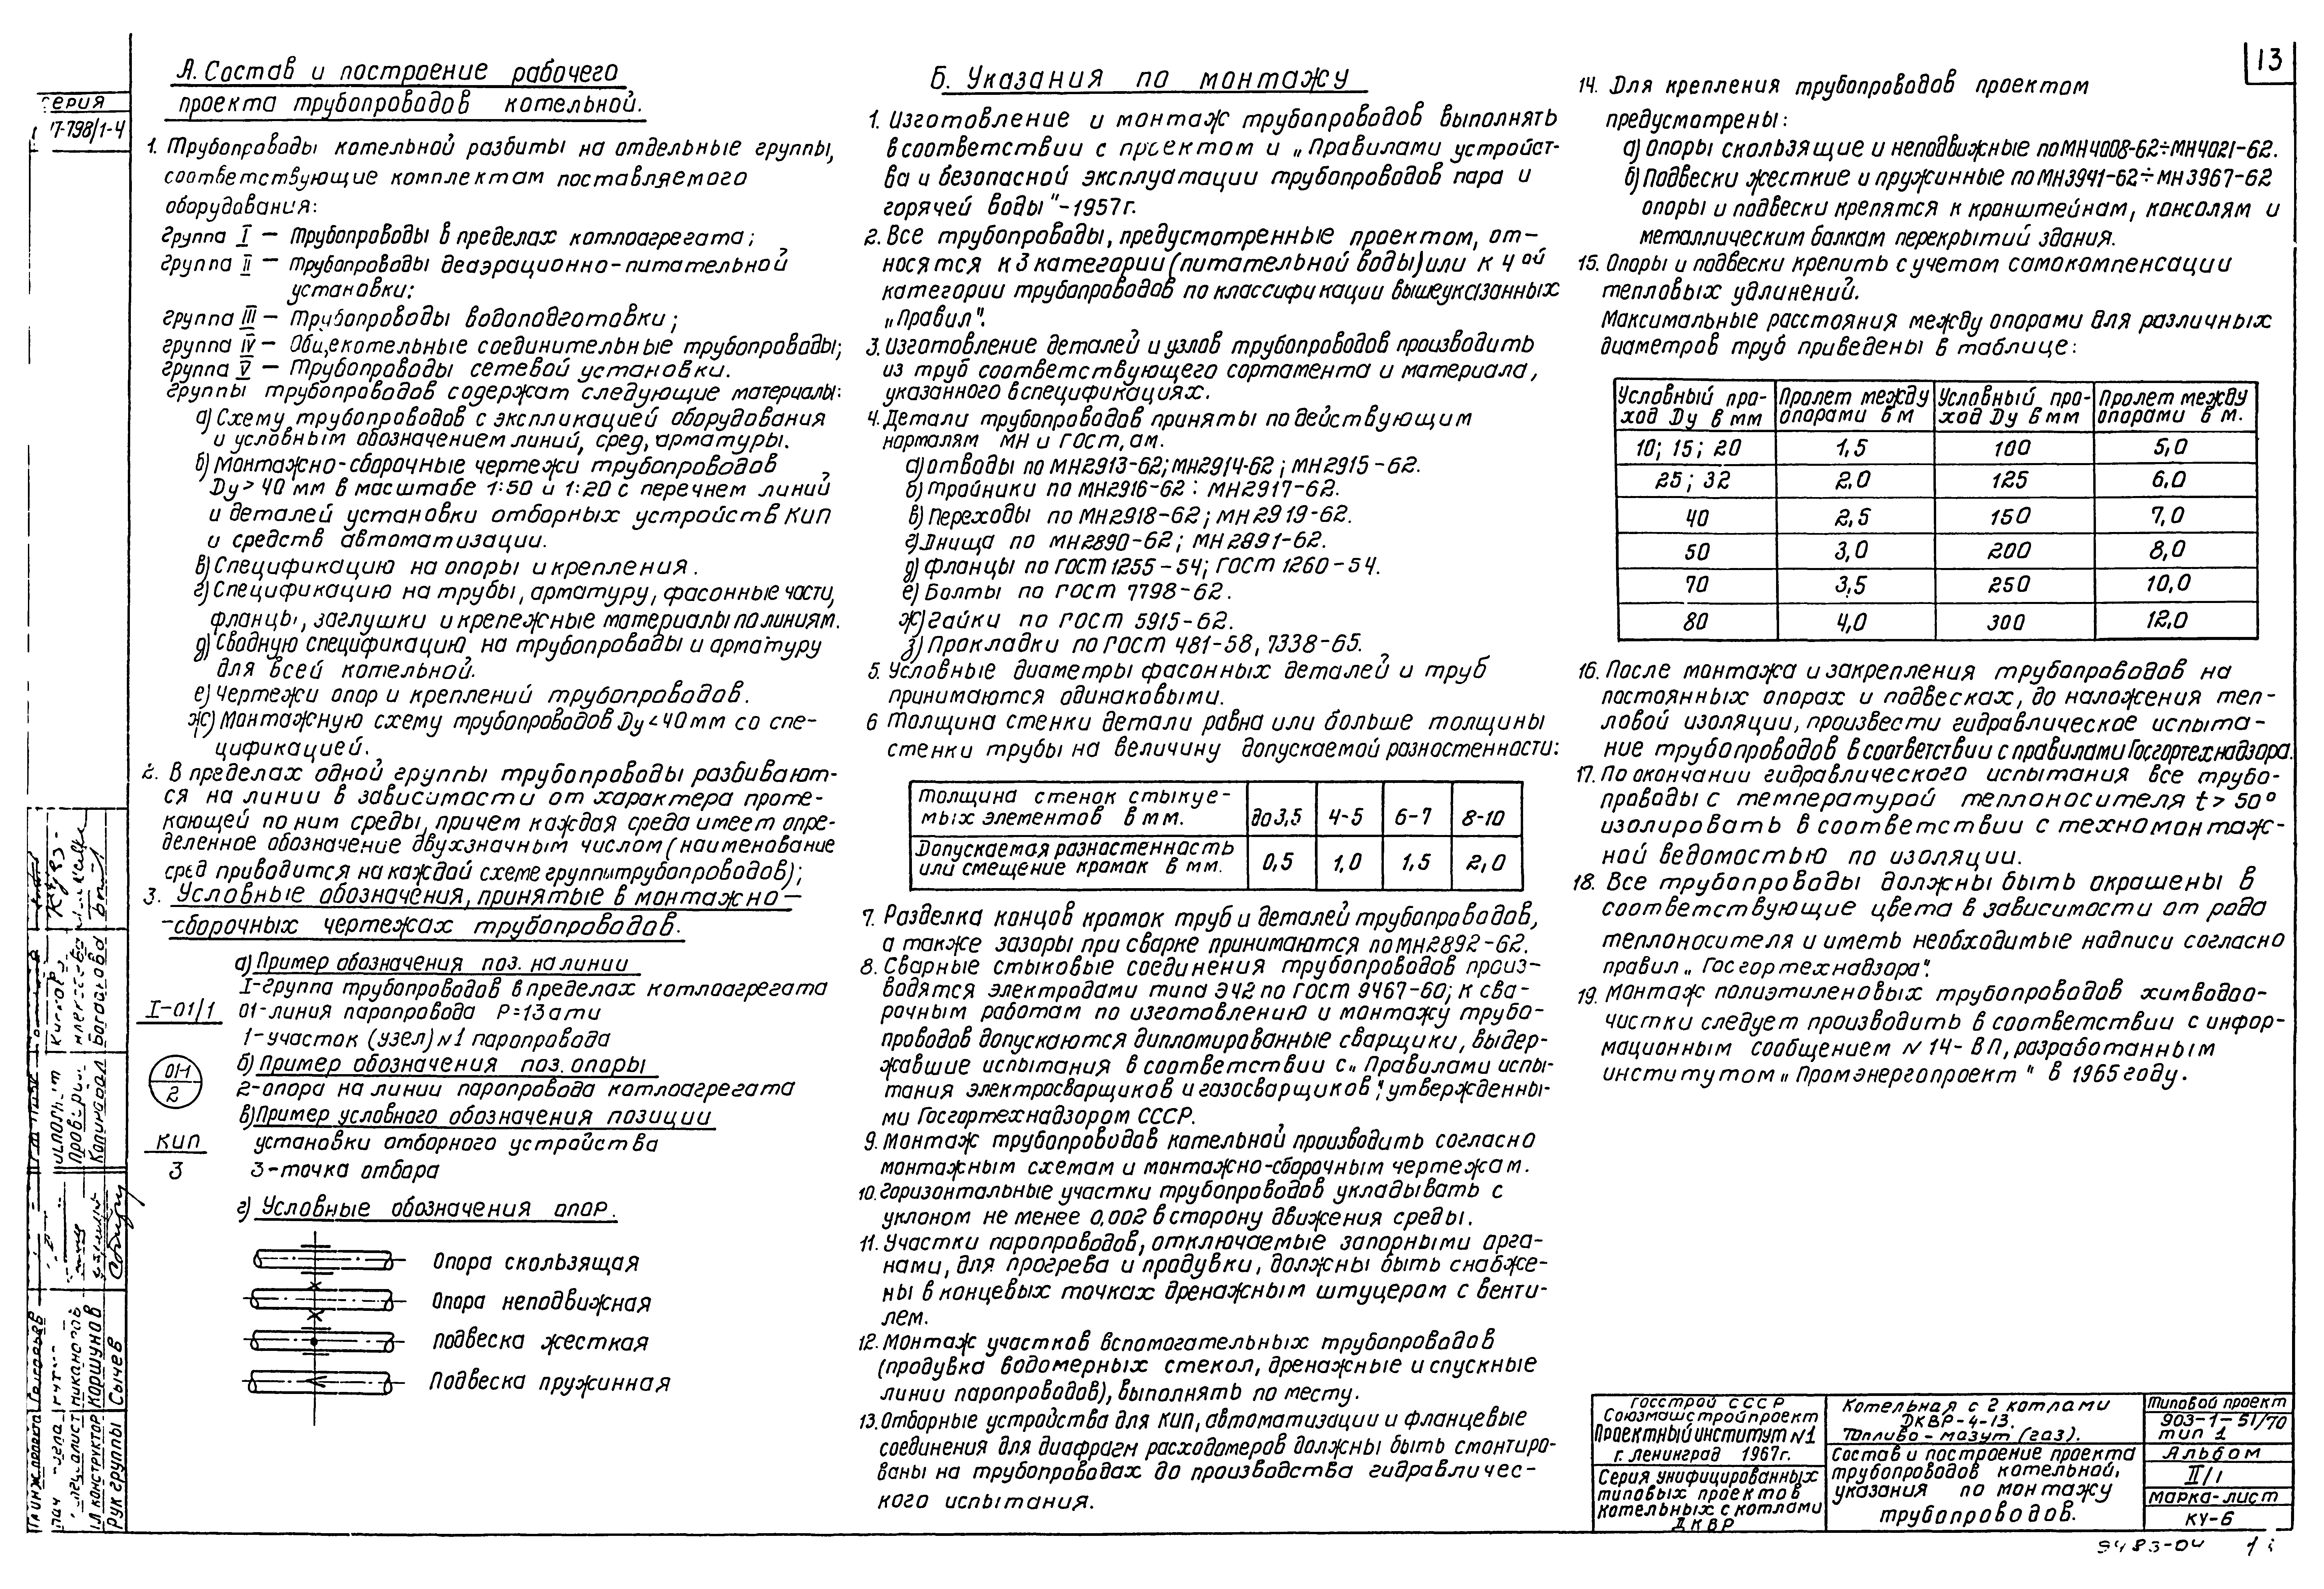 13
серия
7-798/1-4
А. Состав и построение рабочего
проекта трубопроводов котельной.
1. Трубопроводы котельной разбиты на отдельные группы,
соответствующие комплектам поставляемого
оборудования:
группа I — Трубопроводы в пределах котлоагрегата;
группа II — Трубопроводы деаэрационно-питательной
установки;
группа III — Трубопроводы водоподготовки;
группа IV — Общекотельные соединительные трубопроводы;
группа V — Трубопроводы сетевой установки.
Группы трубопроводов содержат следующие материалы:
а) Схему трубопроводов с экспликацией оборудования
и условным обозначением линий, сред, арматуры.
б) Монтажно-сборочные чертежи трубопроводов
Ду > 40 мм в масштабе 1:50 и 1:20 с перечнем линий
и деталей установки отборных устройств КИП
и средств автоматизации.
в) Спецификацию на опоры и крепления.
г) Спецификацию на трубы, арматуру, фасонные части,
фланцы, заглушки и крепежные материалы по линиям.
д) Сводную спецификацию на трубопроводы и арматуру
для всей котельной.
е) Чертежи опор и креплений трубопроводов.
ж) Монтажную схему трубопроводов Ду < 40 мм со спе-
цификацией.
2. В пределах одной группы трубопроводы разбивают-
ся на линии в зависимости от характера проте-
кающей по ним среды, причем каждая среда имеет опре-
деленное обозначение двухзначным числом (наименование
сред приводится на каждой схеме группы трубопроводов);
3. Условные обозначения, принятые в монтажно—
-сборочных чертежах трубопроводов.
а) Пример обозначения поз. на линии
I-группа трубопроводов в пределах котлоагрегата
I-01/1 01-линия паропровода P=13 ати
1-участок (узел) N1 паропровода
б) Пример обозначения поз. опоры
01-1
2
2-опора на линии паропровода котлоагрегата
в) Пример условного обозначения позиции
КИП
3
установки отборного устройства
3-точка отбора
г) Условные обозначения опор.
Опора скользящая
Опора неподвижная
Подвеска жесткая
Подвеска пружинная
Б. Указания по монтажу
1. Изготовление и монтаж трубопроводов выполнять
в соответствии с проектом и „Правилами устройст-
ва и безопасной эксплуатации трубопроводов пара и
горячей воды"-1957г.
2. Все трубопроводы, предусмотренные проектом, от-
носятся к 3 категории (питательной воды) или к 4ой
категории трубопроводов по классификации вышеуказанных
„Правил".
3. Изготовление деталей и узлов трубопроводов производить
из труб соответствующего сортамента и материала,
указанного в спецификациях.
4. Детали трубопроводов приняты по действующим
нормалям МН и ГОСТ, ам.
а) отводы по МН2913-62; МН2914-62; МН2915-62.
б) Тройники по МН2916-62: МН2917-62.
в) Переходы по МН2918-62; МН2919-62.
г) Днища по МН2890-62; МН2891-62.
д) Фланцы по ГОСТ 1255-54; ГОСТ 1260-54.
е) Болты по ГОСТ 7798-62.
ж) Гайки по ГОСТ 5915-62.
з) Прокладки по ГОСТ 481-58, 7338-65.
5. Условные диаметры фасонных деталей и труб
принимаются одинаковыми.
6 Толщина стенки детали равна или больше толщины
стенки трубы на величину допускаемой разностенности:
Толщина стенок стыкуе-
мых элементов в мм. до 3,5 4-5 6-7 8-10
Допускаемая разностенность
или смещение кромок в мм. 0,5 1,0 1,5 2,0
7. Разделка концов кромок труб и деталей трубопроводов,
а также зазоры при сварке принимаются по МН2892-62.
8. Сварные стыковые соединения трубопроводов произ-
водятся электродами типа Э42 по ГОСТ 9467-60; к сва-
рочным работам по изготовлению и монтажу трубо-
проводов допускаются дипломированные сварщики, выдер-
жавшие испытания в соответствии с „Правилами испы-
тания электросварщиков и газосварщиков", утвержденны-
ми Госгортехнадзором СССР.
9. Монтаж трубопроводов котельной производить согласно
монтажным схемам и монтажно-сборочным чертежам.
10. Горизонтальные участки трубопроводов укладывать с
уклоном не менее 0,002 в сторону движения среды.
11. Участки паропроводов, отключаемые запорными орга-
нами, для прогрева и продувки, должны быть снабже-
ны в концевых точках дренажным штуцером с венти-
лем.
12. Монтаж участков вспомогательных трубопроводов
(продувка водомерных стекол, дренажные и спускные
линии паропроводов), выполнять по месту.
13. Отборные устройства для КИП, автоматизации и фланцевые
соединения для диафрагм расходомеров должны быть смонтиро-
ваны на трубопроводах до производства гидравличес-
кого испытания.
14. Для крепления трубопроводов проектом
предусмотрены:
а) Опоры скользящие и неподвижные по МН4008-62÷МН4021-62.
б) Подвески жесткие и пружинные по МН3941-62÷МН3967-62
опоры и подвески крепятся к кронштейнам, консолям и
металлическим балкам перекрытий здания.
15. Опоры и подвески крепить с учетом самокомпенсации
тепловых удлинений.
Максимальные расстояния между опорами для различных
диаметров труб приведены в таблице:
Условный про- Пролет между Условный про- Пролет между
ход Ду в мм опорами в м ход Ду в мм опорами в м.
10; 15; 20 1,5 100 5,0
25; 32 2,0 125 6,0
40 2,5 150 7,0
50 3,0 200 8,0
70 3,5 250 10,0
80 4,0 300 12,0
16. После монтажа и закрепления трубопроводов на
постоянных опорах и подвесках, до наложения теп-
ловой изоляции, произвести гидравлическое испыта-
ние трубопроводов в соответствии с правилами Госгортехнадзора.
17. По окончании гидравлического испытания все трубо-
проводы с температурой теплоносителя t > 50°
изолировать в соответствии с техномонтаж-
ной ведомостью по изоляции.
18. Все трубопроводы должны быть окрашены в
соответствующие цвета в зависимости от рода
теплоносителя и иметь необходимые надписи согласно
правил „Госгортехнадзора".
19. Монтаж полиэтиленовых трубопроводов химводоо-
чистки следует производить в соответствии с инфор-
мационным сообщением N 14-ВП, разработанным
институтом „Промэнергопроект" в 1965 году.
Госстрой СССР
Союзмашстройпроект
Проектный институт N1
г. Ленинград 1967г.
Серия унифицированных
типовых проектов
котельных с котлами
ДКВР
Котельная с 2 котлами
ДКВР-4-13.
Топливо-мазут (газ).
Состав и построение проекта
трубопроводов котельной,
указания по монтажу
трубопроводов.
Типовой проект
903-1-51/70
тип 1
Альбом
II/1
марка-лист
КУ-6
9483-04
Гл инж проекта
Гл конструктор Коршунов
Рук группы Сычев
Проверил
Копировал Богатова